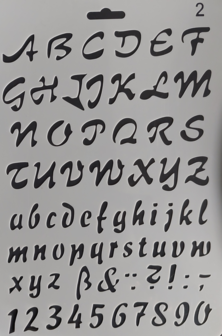 2
A B C D E F
G H I J K L M
N O P Q R S
T U V W X Y Z
a b c d e f g h i j k l
m n o p q r s t u v w
x y z ß & : : ? ! : , -
1 2 3 4 5 6 7 8 9 0